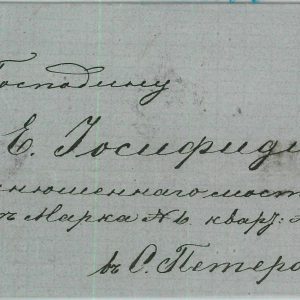 Господину
Е. Іосифиди
нюшеннаго мост
Марка № 6. кварт:
въ С. Петер